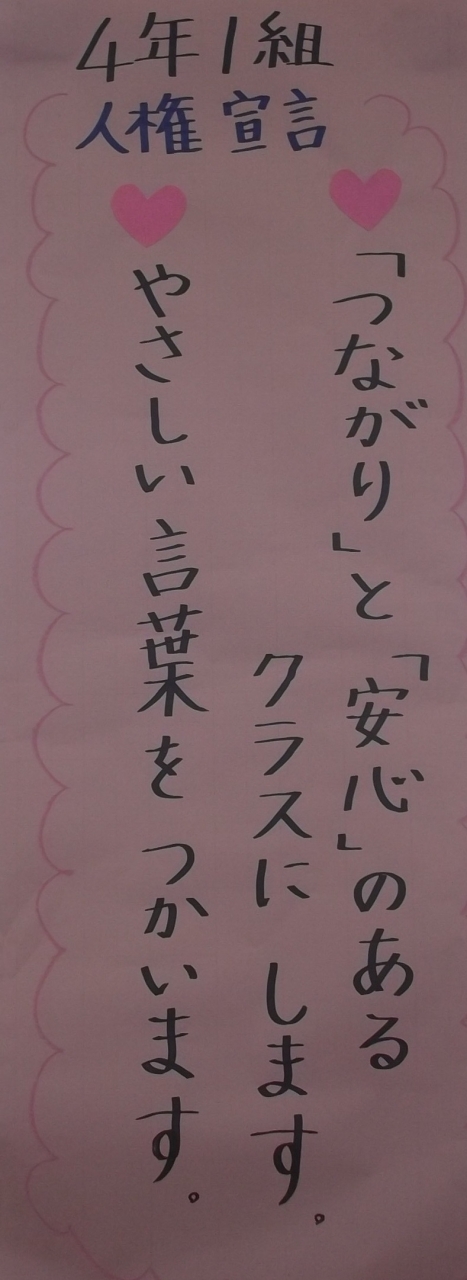 4年1組
人権宣言
「つながり」と「安心」のある
クラスに します。
やさしい言葉を つかいます。